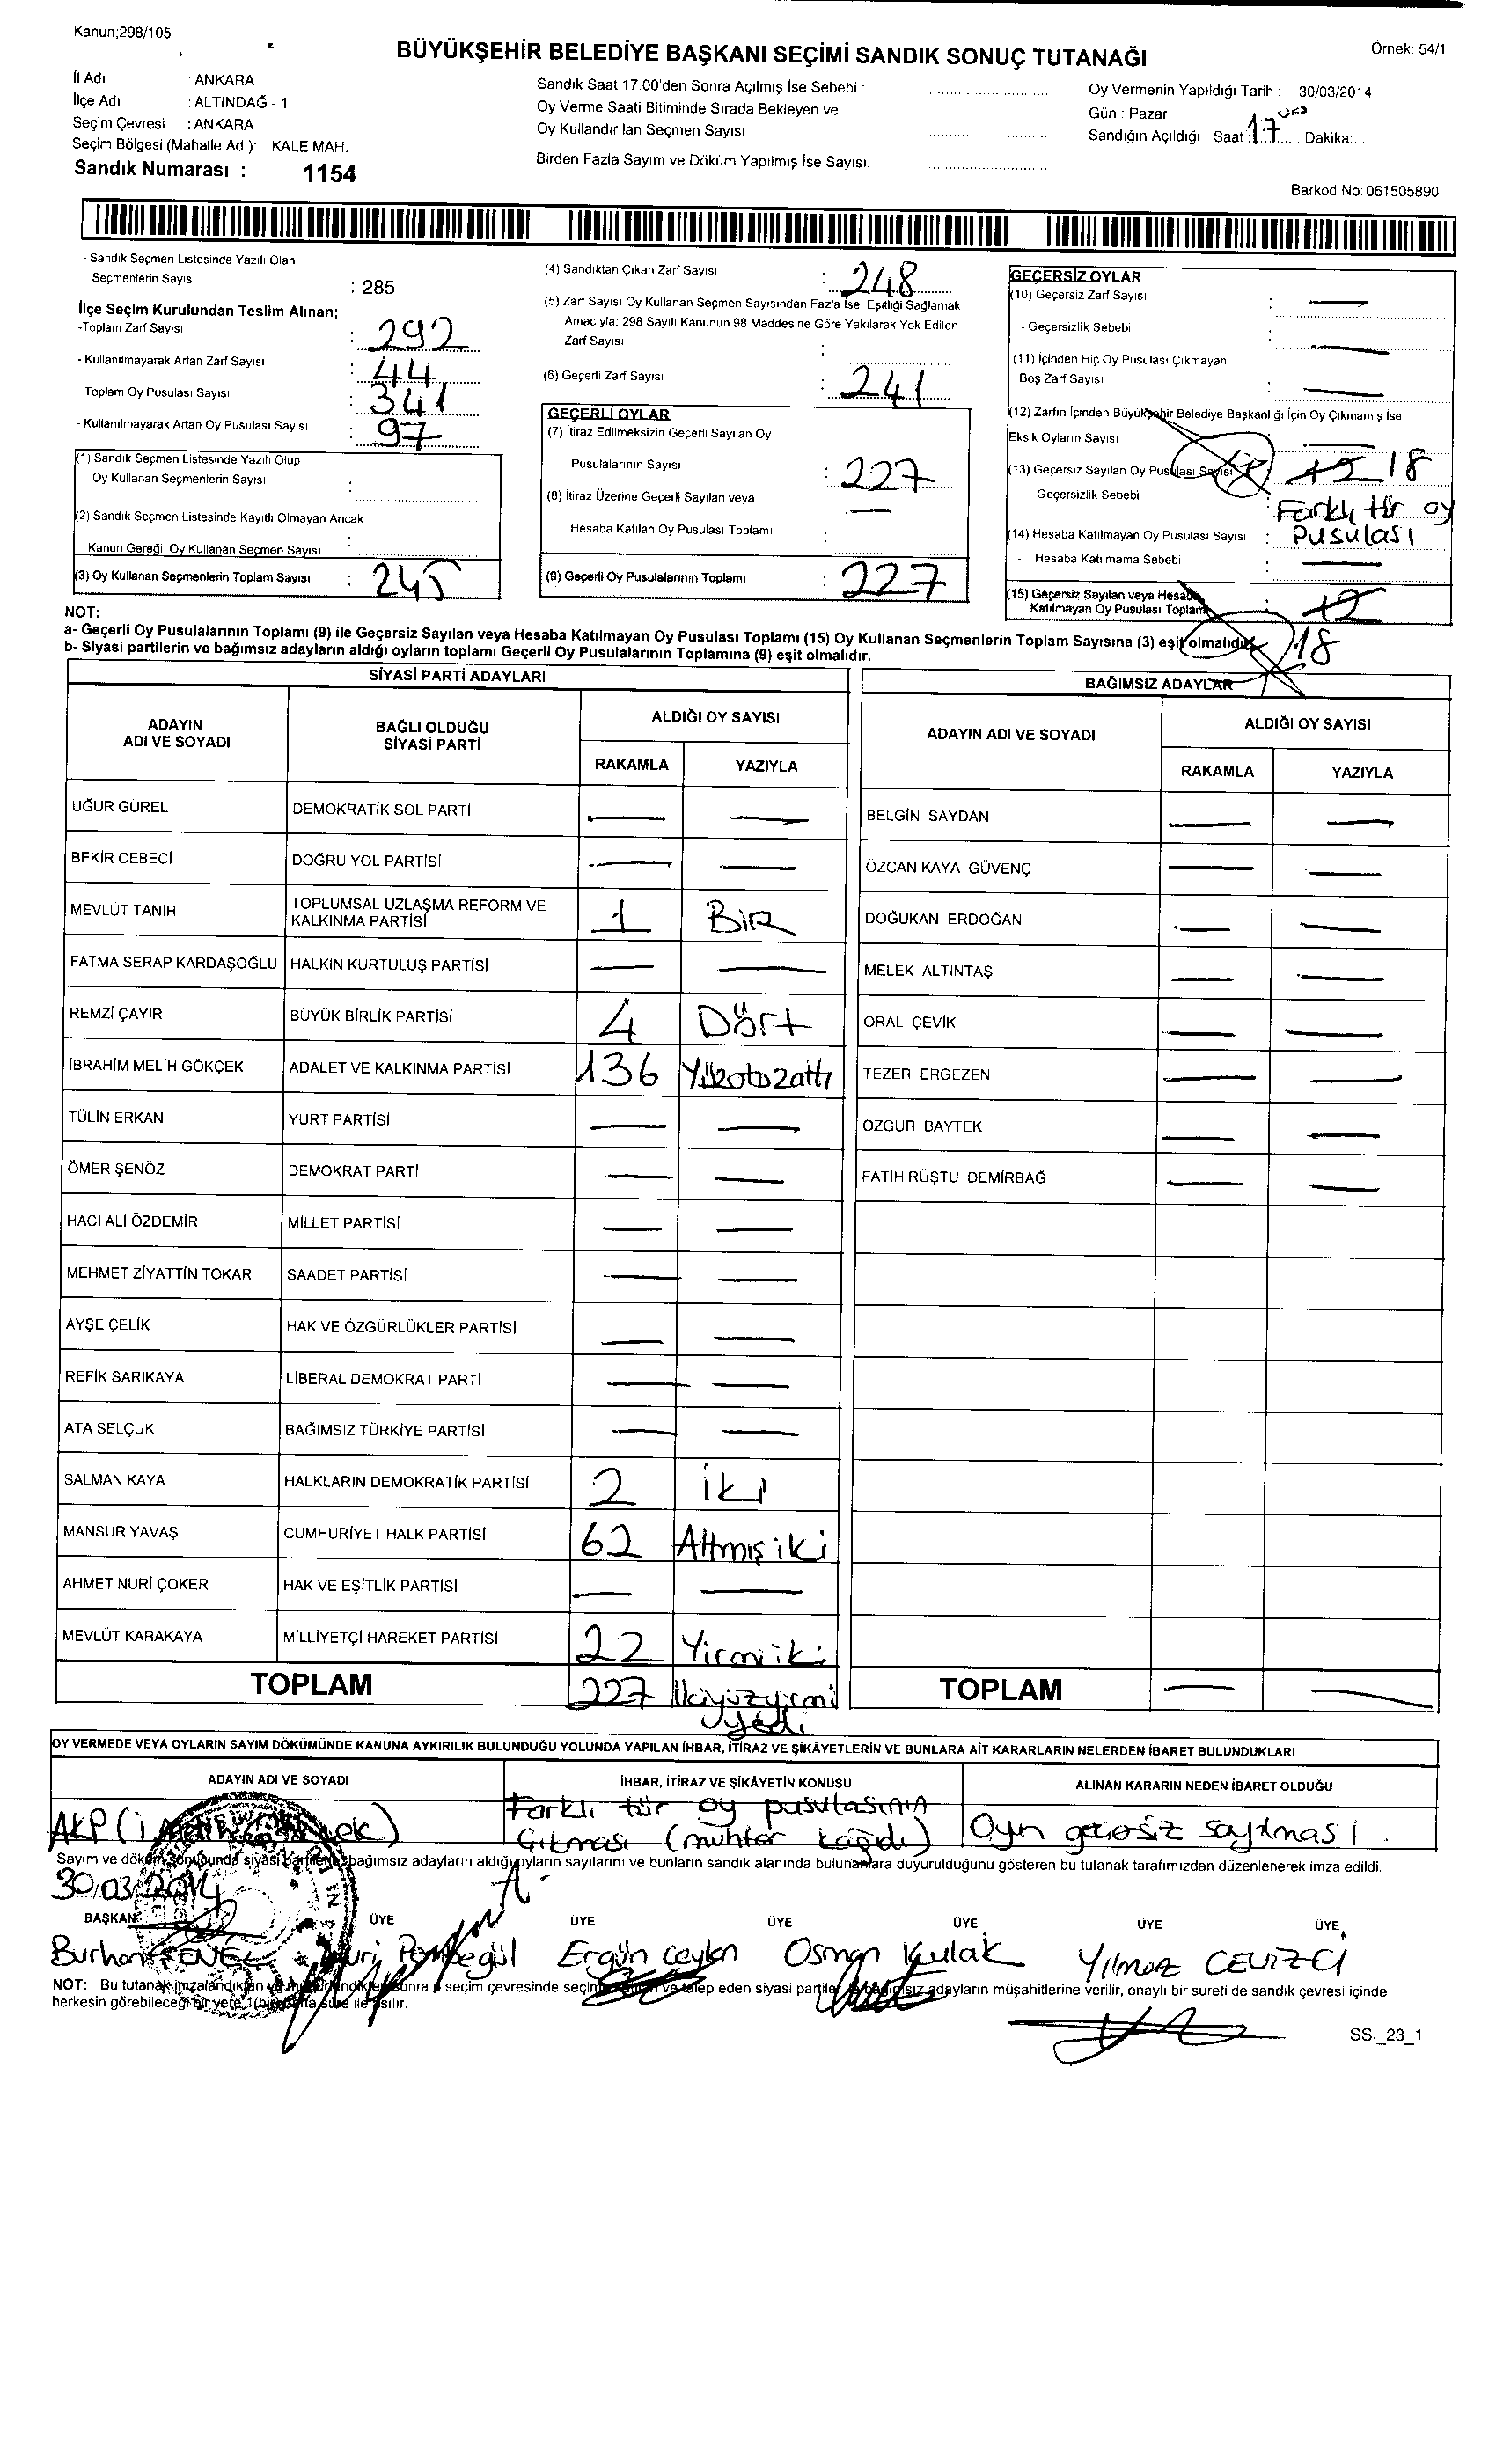 Kanun;298/105
BÜYÜKŞEHİR BELEDİYE BAŞKANI SEÇİMİ SANDIK SONUÇ TUTANAĞI
Örnek: 54/1
İl Adı : ANKARA
İlçe Adı : ALTINDAĞ - 1
Seçim Çevresi : ANKARA
Seçim Bölgesi (Mahalle Adı): KALE MAH.
Sandık Numarası : 1154
Sandık Saat 17.00'den Sonra Açılmış İse Sebebi :
Oy Verme Saati Bitiminde Sırada Bekleyen ve
Oy Kullandırılan Seçmen Sayısı :
Birden Fazla Sayım ve Döküm Yapılmış İse Sayısı:
Oy Vermenin Yapıldığı Tarih : 30/03/2014
Gün : Pazar
Sandığın Açıldığı Saat: 17 Dakika:
Barkod No: 061505890
- Sandık Seçmen Listesinde Yazılı Olan
Seçmenlerin Sayısı : 285
İlçe Seçim Kurulundan Teslim Alınan;
-Toplam Zarf Sayısı : 292
- Kullanılmayarak Artan Zarf Sayısı : 44
- Toplam Oy Pusulası Sayısı : 341
- Kullanılmayarak Artan Oy Pusulası Sayısı : 97
(1) Sandık Seçmen Listesinde Yazılı Olup
Oy Kullanan Seçmenlerin Sayısı :
(2) Sandık Seçmen Listesinde Kayıtlı Olmayan Ancak
Kanun Gereği Oy Kullanan Seçmen Sayısı :
(3) Oy Kullanan Seçmenlerin Toplam Sayısı : 245
(4) Sandıktan Çıkan Zarf Sayısı : 248
(5) Zarf Sayısı Oy Kullanan Seçmen Sayısından Fazla İse, Eşitliği Sağlamak
Amacıyla; 298 Sayılı Kanunun 98.Maddesine Göre Yakılarak Yok Edilen
Zarf Sayısı :
(6) Geçerli Zarf Sayısı : 241
GEÇERLİ OYLAR
(7) İtiraz Edilmeksizin Geçerli Sayılan Oy
Pusulalarının Sayısı : 227
(8) İtiraz Üzerine Geçerli Sayılan veya
Hesaba Katılan Oy Pusulası Toplamı : —
(9) Geçerli Oy Pusulalarının Toplamı : 227
GEÇERSİZ OYLAR
(10) Geçersiz Zarf Sayısı : —
- Geçersizlik Sebebi : —
(11) İçinden Hiç Oy Pusulası Çıkmayan
Boş Zarf Sayısı : —
(12) Zarfın İçinden Büyükşehir Belediye Başkanlığı İçin Oy Çıkmamış İse
Eksik Oyların Sayısı : —
(13) Geçersiz Sayılan Oy Pusulası Sayısı 18
- Geçersizlik Sebebi : Farklı tür oy
Pusulası
(14) Hesaba Katılmayan Oy Pusulası Sayısı :
- Hesaba Katılmama Sebebi : —
(15) Geçersiz Sayılan veya Hesaba
Katılmayan Oy Pusulası Toplamı : 12 18
NOT:
a- Geçerli Oy Pusulalarının Toplamı (9) ile Geçersiz Sayılan veya Hesaba Katılmayan Oy Pusulası Toplamı (15) Oy Kullanan Seçmenlerin Toplam Sayısına (3) eşit olmalıdır.
b- Siyasi partilerin ve bağımsız adayların aldığı oyların toplamı Geçerli Oy Pusulalarının Toplamına (9) eşit olmalıdır.
SİYASİ PARTİ ADAYLARI
ADAYIN ADI VE SOYADI BAĞLI OLDUĞU SİYASİ PARTİ ALDIĞI OY SAYISI
RAKAMLA YAZIYLA
UĞUR GÜREL DEMOKRATİK SOL PARTİ — —
BEKİR CEBECİ DOĞRU YOL PARTİSİ — —
MEVLÜT TANIR TOPLUMSAL UZLAŞMA REFORM VE KALKINMA PARTİSİ 1 BİR
FATMA SERAP KARDAŞOĞLU HALKIN KURTULUŞ PARTİSİ — —
REMZİ ÇAYIR BÜYÜK BİRLİK PARTİSİ 4 Dört
İBRAHİM MELİH GÖKÇEK ADALET VE KALKINMA PARTİSİ 136 Yüzotuzaltı
TÜLİN ERKAN YURT PARTİSİ — —
ÖMER ŞENÖZ DEMOKRAT PARTİ — —
HACI ALİ ÖZDEMİR MİLLET PARTİSİ — —
MEHMET ZİYATTİN TOKAR SAADET PARTİSİ — —
AYŞE ÇELİK HAK VE ÖZGÜRLÜKLER PARTİSİ — —
REFİK SARIKAYA LİBERAL DEMOKRAT PARTİ — —
ATA SELÇUK BAĞIMSIZ TÜRKİYE PARTİSİ — —
SALMAN KAYA HALKLARIN DEMOKRATİK PARTİSİ 2 iki
MANSUR YAVAŞ CUMHURİYET HALK PARTİSİ 62 Altmış iki
AHMET NURİ ÇOKER HAK VE EŞİTLİK PARTİSİ — —
MEVLÜT KARAKAYA MİLLİYETÇİ HAREKET PARTİSİ 22 Yirmi iki
TOPLAM 227 İkiyüzyirmi
yedi
BAĞIMSIZ ADAYLAR
ADAYIN ADI VE SOYADI ALDIĞI OY SAYISI
RAKAMLA YAZIYLA
BELGİN SAYDAN — —
ÖZCAN KAYA GÜVENÇ — —
DOĞUKAN ERDOĞAN — —
MELEK ALTINTAŞ — —
ORAL ÇEVİK — —
TEZER ERGEZEN — —
ÖZGÜR BAYTEK — —
FATİH RÜŞTÜ DEMİRBAĞ — —
TOPLAM — —
OY VERMEDE VEYA OYLARIN SAYIM DÖKÜMÜNDE KANUNA AYKIRILIK BULUNDUĞU YOLUNDA YAPILAN İHBAR, İTİRAZ VE ŞİKÂYETLERİN VE BUNLARA AİT KARARLARIN NELERDEN İBARET BULUNDUKLARI
ADAYIN ADI VE SOYADI İHBAR, İTİRAZ VE ŞİKÂYETİN KONUSU ALINAN KARARIN NEDEN İBARET OLDUĞU
AKP
Farklı tür oy pusulasının
Çıkması (muhtar kağıdı)
Oyun geçersiz sayılması.
Sayım ve döküm sonucunda siyasi partilerin, bağımsız adayların aldığı oyların sayılarını ve bunların sandık alanında bulunanlara duyurulduğunu gösteren bu tutanak tarafımızdan düzenlenerek imza edildi.
30/03/2014
BAŞKAN ÜYE ÜYE ÜYE ÜYE ÜYE ÜYE
Burhan ŞENEL Nuri Pembegül Ergün Ceylan Osman Kulak Yılmaz CEVİZCİ
NOT: Bu tutanak imzalandıktan ve mühürlendikten sonra seçim çevresinde seçime katılan ve talep eden siyasi partiler ile bağımsız adayların müşahitlerine verilir, onaylı bir sureti de sandık çevresi içinde
herkesin görebileceği bir yere 1(bir) hafta süre ile asılır.
SSI_23_1